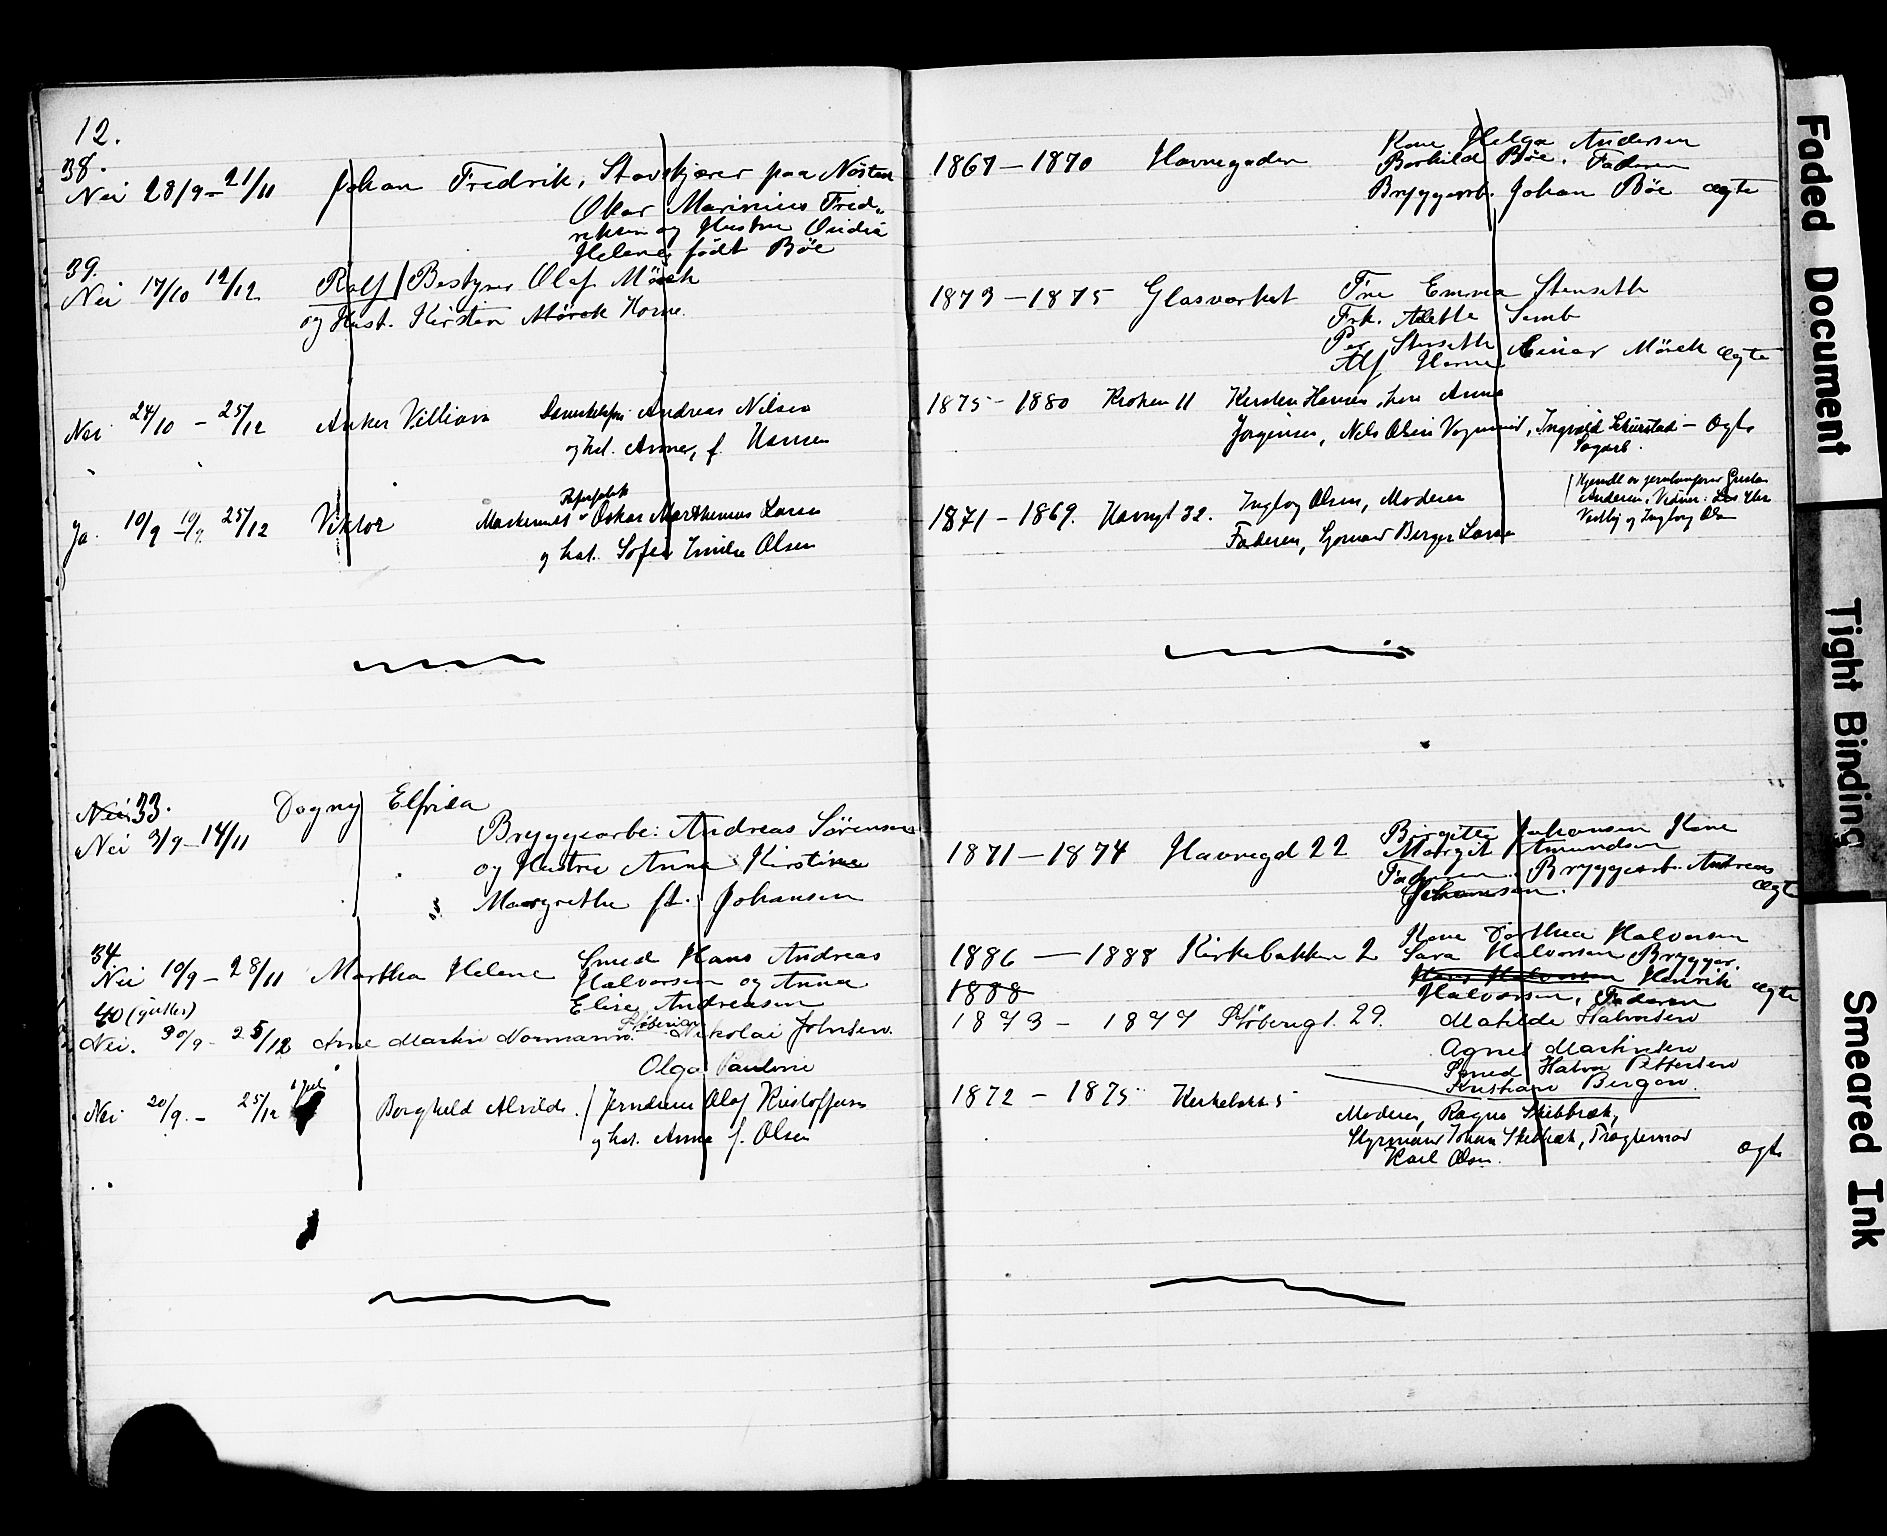 12.
38.
Nei 28/9 - 21/11 Johan Fredrik, Stavskjærer paa Nøsten
Oskar Marinius Fred-
riksen og Hustru Ovidia
Helene født Bøe
1867 - 1870 Havnegaden
Kone Helga Andersen
Borhild Bøe. Faderen
Bryggearb. Johan Bøe ægte
39.
Nei 17/10 12/12 Rolf / Bestyrer Olaf Mörck
og Hust. Kirsten Mörck Horne.
1873 - 1875 Glasværket
Fru Emma Stenseth
Frk. Alette Semb
Per Stenseth Einar Mörck ægte
Alf Horne
Nei 24/10 - 25/12 Anker Villiam
Andreas Nilsen
og hst. Anna, f. Hansen
1875 - 1880 Kroken 11 Kirsten Hansen, Anna
Jørgensen, Nils Olsen, Ingvald - Ægte
Ja. 10/9 - 10/9 25/12 Viktor
Oskar Marthinius Larsen
og hst. Sofie Emilie Olsen
1871 - 1869. Havngt 32. Ingborg Olsen, Moderen
Faderen, Berger Larsen
Hjemdt av
Andersen, Vidner:
og Ingborg Olsen
Nei 33.
Nei 3/9 - 14/11 Dagny Elfrida
Bryggearbe: Andreas Sörensen
og Hustru Anna Kirstine
Margrethe ft. Johansen
1871 - 1874 Havnegd 22
Birgitte Johansen Kone
Margit Amundsen
Faderen. Bryggearb. Andreas
Johansen. ægte
34
Nei 10/9 - 28/11 Martha Helene
Smed Hans Andreas
Halvorsen og Anna
Elise Andreasen
1886 - 1888 Kirkebakken 2
1888
Kone Dorthea Halvorsen
Sara Halvorsen Brygger.
Hans Halvorsen Henrik
Halvorsen, Faderen ægte
40
Nei. 30/9 - 25/12 Arne Martin Normann. Nikolai Johnsen.
Olga Pauline
1873 - 1877 Støbergt. 29.
Matilde Halvorsen
Agnes Martinsen
Smed Halvor Pettersen
Kristian Bergan.
Nei 20/9. - 25/12 Borghild Alvilde. / Olaf Kristoffersen
og hst. Anna f. Olsen
1872 - 1875 Kirkebakk 5
Moderen, Ragna Skibbræk,
Styrmand Johan Skibbræk,
Karl Olsen. ægte
Faded Document
Tight Binding
Smeared Ink